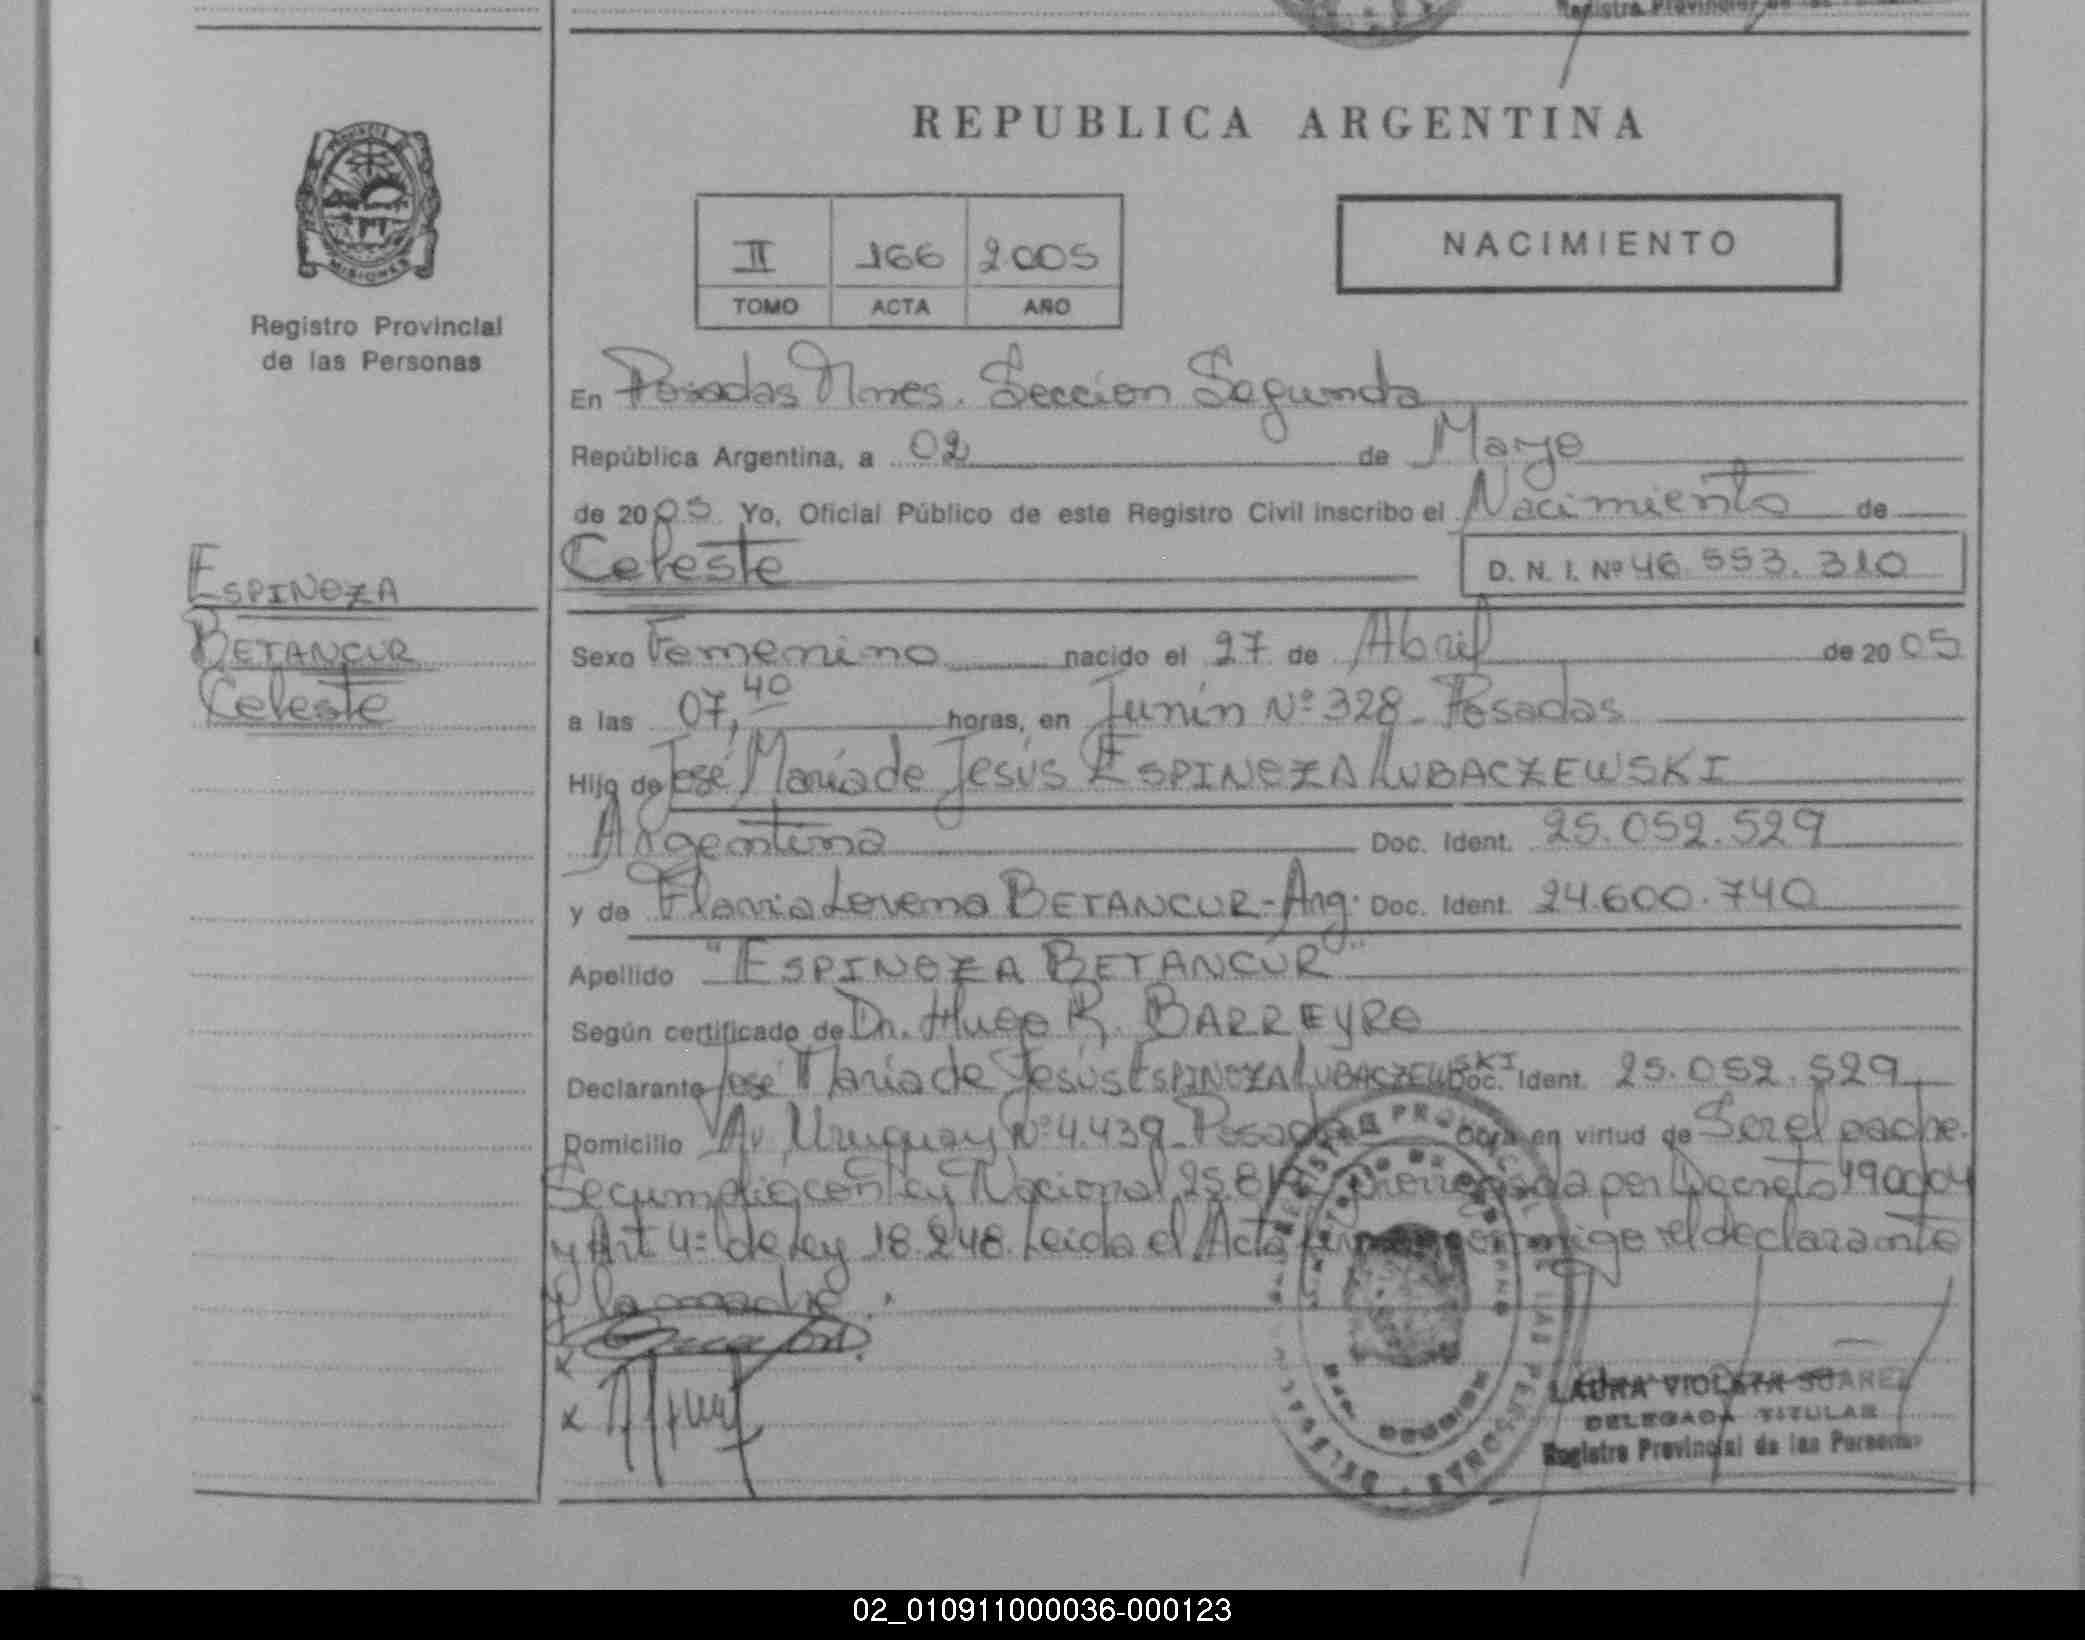 REPUBLICA ARGENTINA
MISIONES
Registro Provincial
de las Personas
II 166 2005
TOMO ACTA AÑO
NACIMIENTO
En Posadas Mnes. Sección Segunda
República Argentina, a 02 de Mayo
de 2005 Yo, Oficial Público de este Registro Civil inscribo el Nacimiento de
Celeste
D. N. I. Nº 46.553.310
ESPINOZA
BETANCUR
Celeste
Sexo Femenino nacido el 27 de Abril de 2005
a las 07,40 horas, en Junín Nº 328 - Posadas
Hijo de José María de Jesús ESPINOZA LUBACZEWSKI
Argentina Doc. Ident. 25.052.529
y de Flavia Lorena BETANCUR - Arg. Doc. Ident. 24.600.740
Apellido "ESPINOZA BETANCUR"
Según certificado de Dr. Hugo R. BARREYRO
Declarante José María de Jesús ESPINOZA LUBACZEWSKI Doc. Ident. 25.052.529
Domicilio Av. Uruguay Nº 4.439 - Posadas Obra en virtud de Ser el padre.
Se cumplió con Ley Nacional por Decreto
y Art 4º de Ley 18.248. Leida el Acta conmigo el declarante
y la madre.
LAURA VIOLETA SUAREZ
DELEGADA TITULAR
Registro Provincial de las Personas
02_010911000036-000123